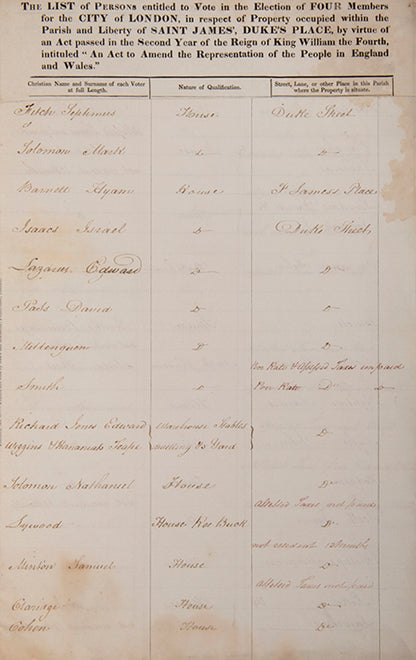 THE LIST of PERSONS entitled to Vote in the Election of FOUR Members
for the CITY of LONDON, in respect of Property occupied within the
Parish and Liberty of SAINT JAMES', DUKE'S PLACE, by virtue of
an Act passed in the Second Year of the Reign of King William the Fourth,
intituled "An Act to Amend the Representation of the People in England
and Wales."
Christian Name and Surname of each Voter at full Length. Nature of Qualification. Street, Lane, or other Place in this Parish where the Property is situate.
Fitch Sephmus House Duke Street
Solomon Mark Do Do
Barnett Hyam House St James's Place
Isaacs Israel Do Duke Street
Lazarus Edward Do Do
David Do Do
Do Do
Poor Rate & Assessed Taxes unpaid
Smith Do Poor Rate Do
Richard Jones Edward Warehouse Stables Do
Wiggins & Hananiah Dwelling & Yard
Solomon Nathaniel House Do
Assessed Taxes not paid
Lywood House Roe Buck Do
not resident 12 Months
Minton Samuel House Do
Assessed Taxes not paid
Claridge House Do
Cohen House Do